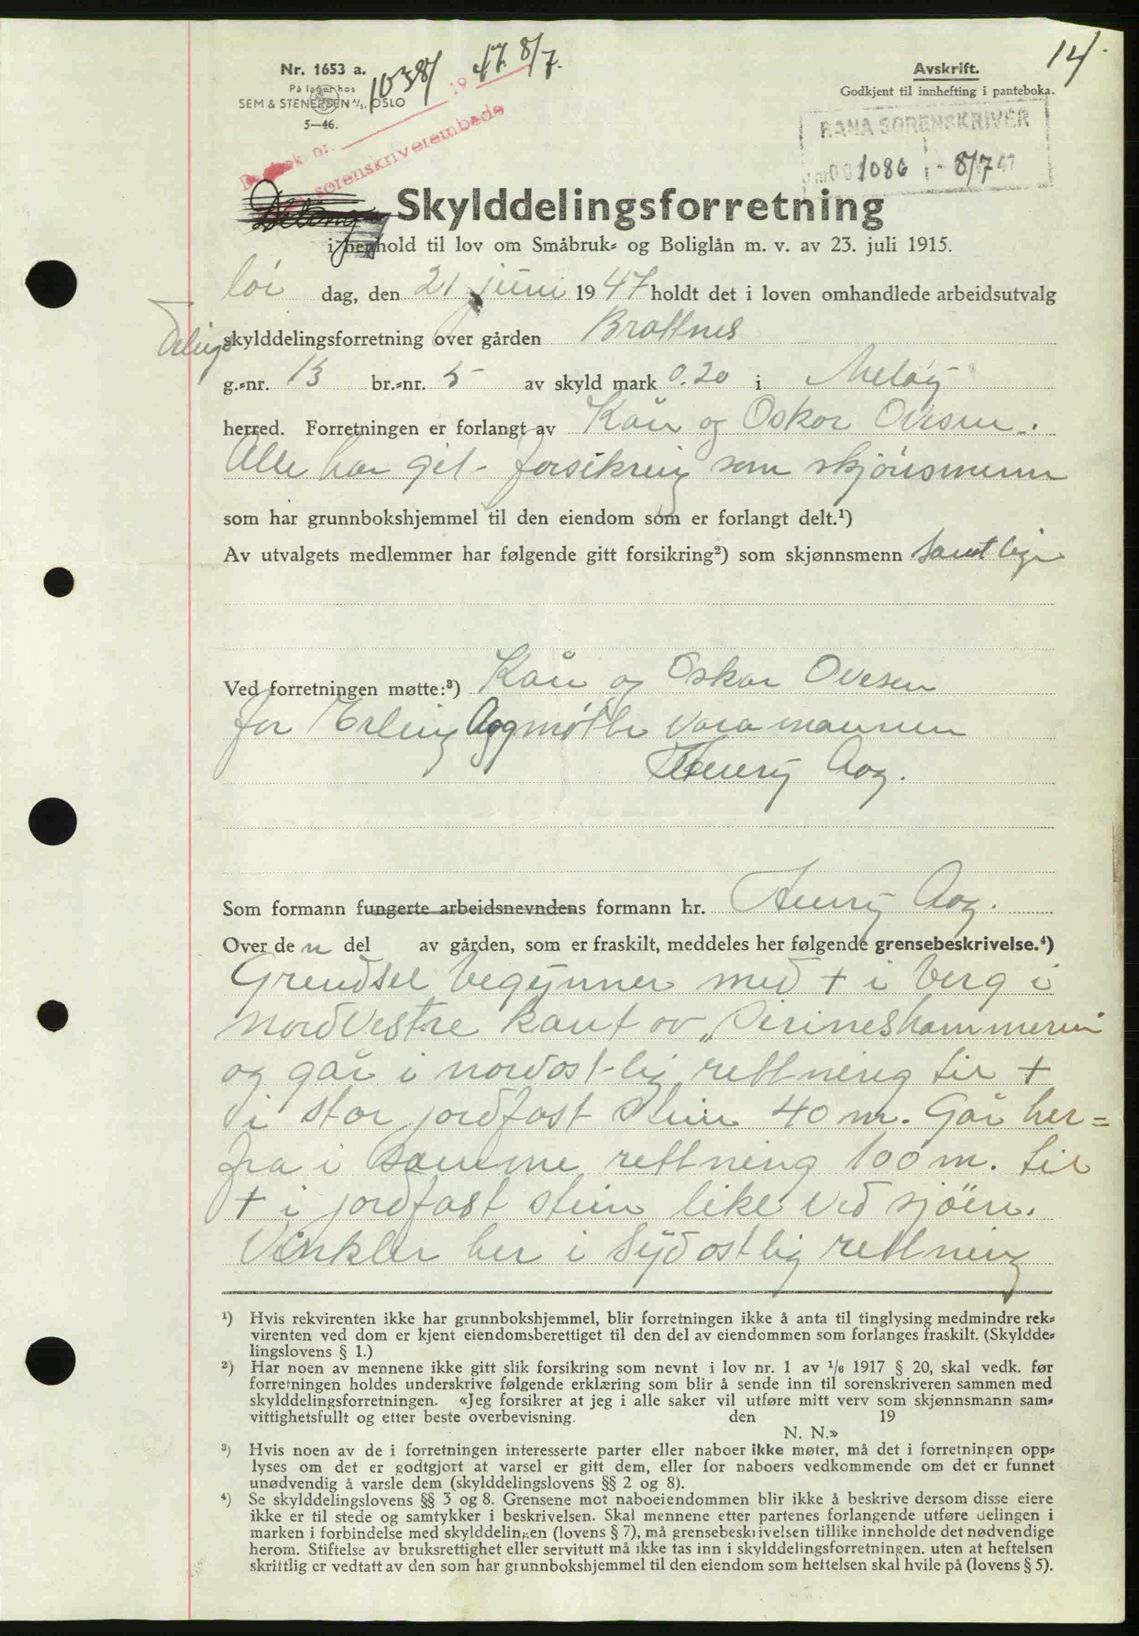 14
Nr. 1653 a.
På lager hos
SEM & STENERSEN A/S. OSLO
5—46.
1038/ 1947 8/7.
Dagbok nr.
sorenskriverembede
Avskrift.
Godkjent til innhefting i panteboka.
RANA SORENSKRIVER
1086 - 8/7 47
Skylddelingsforretning
i henhold til lov om Småbruk- og Boliglån m. v. av 23. juli 1915.
lör dag, den 21 juni 1947 holdt det i loven omhandlede arbeidsutvalg
Deling
skylddelingsforretning over gården Brattnes
g.-nr. 13 br.-nr. 5 av skyld mark 0.20 i Meløy
herred. Forretningen er forlangt av Kåre og Oskar Ovesen.
Alle har git forsikring som skjönsmenn
som har grunnbokshjemmel til den eiendom som er forlangt delt.¹)
Av utvalgets medlemmer har følgende gitt forsikring²) som skjønnsmenn samtlige
Ved forretningen møtte:³) Kåre og Oskar Ovesen
for Erling Aag møtte varamannen
Henry Aag.
Som formann fungerte arbeidsnevndens formann hr. Henry Aag.
Over de n del av gården, som er fraskilt, meddeles her følgende grensebeskrivelse.⁴)
Grendsel begynner med + i berg i
nordvestre kant av „Perineshammeren
og går i nordostlig rettning til +
i stor jordfast stein 40 m. Går her=
fra i samme rettning 100 m. til
+ i jordfast stein like ved sjöen.
Vinkler her i sydostlig rettning
¹) Hvis rekvirenten ikke har grunnbokshjemmel, blir forretningen ikke å anta til tinglysing medmindre rek-
virenten ved dom er kjent eiendomsberettiget til den del av eiendommen som forlanges fraskilt. (Skyldde-
lingslovens § 1.)
²) Har noen av mennene ikke gitt slik forsikring som nevnt i lov nr. 1 av 1/6 1917 § 20, skal vedk. før
forretningen holdes underskrive følgende erklæring som blir å sende inn til sorenskriveren sammen med
skylddelingsforretningen. «Jeg forsikrer at jeg i alle saker vil utføre mitt verv som skjønnsmann sam-
vittighetsfullt og etter beste overbevisning. den 19
N. N.»
³) Hvis noen av de i forretningen interesserte parter eller naboer ikke møter, må det i forretningen opp-
lyses om det er godtgjort at varsel er gitt dem, eller for naboers vedkommende om det er funnet
unødvendig å varsle dem (skylddelingslovens §§ 2 og 8).
⁴) Se skylddelingslovens §§ 3 og 8. Grensene mot naboeiendommen blir ikke å beskrive dersom disse eiere
ikke er til stede og samtykker i beskrivelsen. Skal mennene etter partenes forlangende utføre delingen i
marken i forbindelse med skylddelingen (lovens § 7), må grensebeskrivelsen tillike inneholde det nødvendige
herom. Stiftelse av bruksrettighet eller servitutt må ikke tas inn i skylddelingsforretningen. uten at heftelsen
skrittlig er vedtatt av den som har grunnbokshjemmel til den eiendom som heftelsen skal hvile på (lovens § 5).